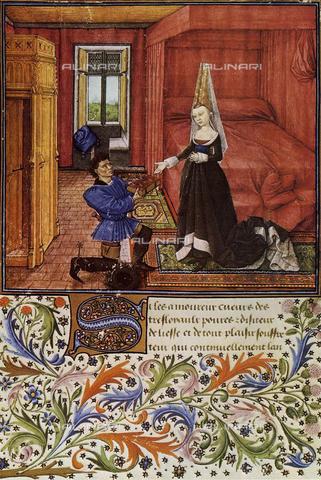 ALINARI
ALINARI
ALINARI
Si les amoureux cueurs des
tresloyaulx poures disireux
de liesse et de tout plaisir souffre
teux qui continuellement lan